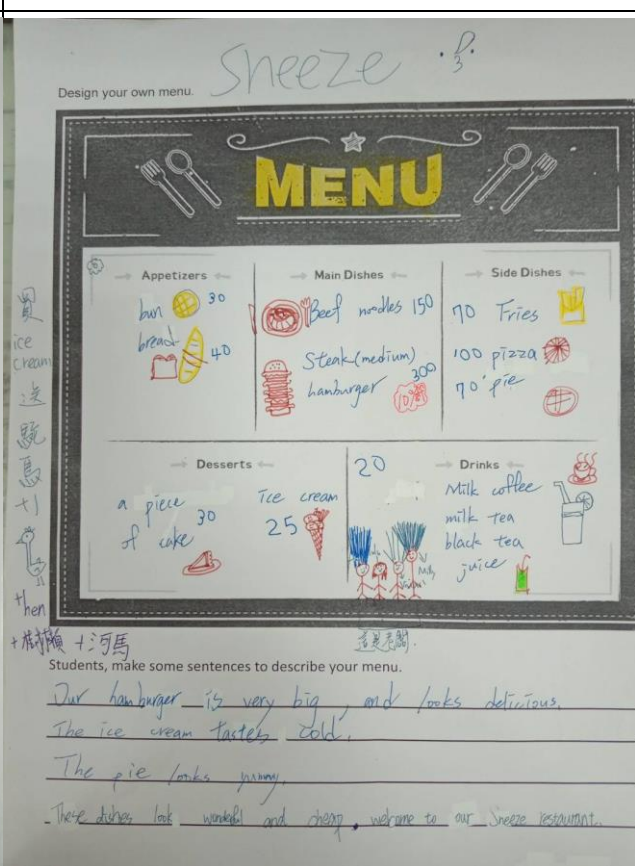 Sneeze
Design your own menu.
MENU
Appetizers
bun 30
bread 40
Main Dishes
Beef noodles 150
Steak(medium)
hamburger 300
Side Dishes
70 Fries
100 pizza
70 pie
Desserts
a piece
of cake 30
Ice cream
25
20
Drinks
Milk coffee
milk tea
black tea
juice
買
ice
cream
送
馬
+1
then
+樹懶 +河馬
Students, make some sentences to describe your menu.
Our hamburger is very big, and looks delicious.
The ice cream tastes cold.
The pie looks yummy.
These dishes look wonderful and cheap, welcome to our Sneeze restaurant.